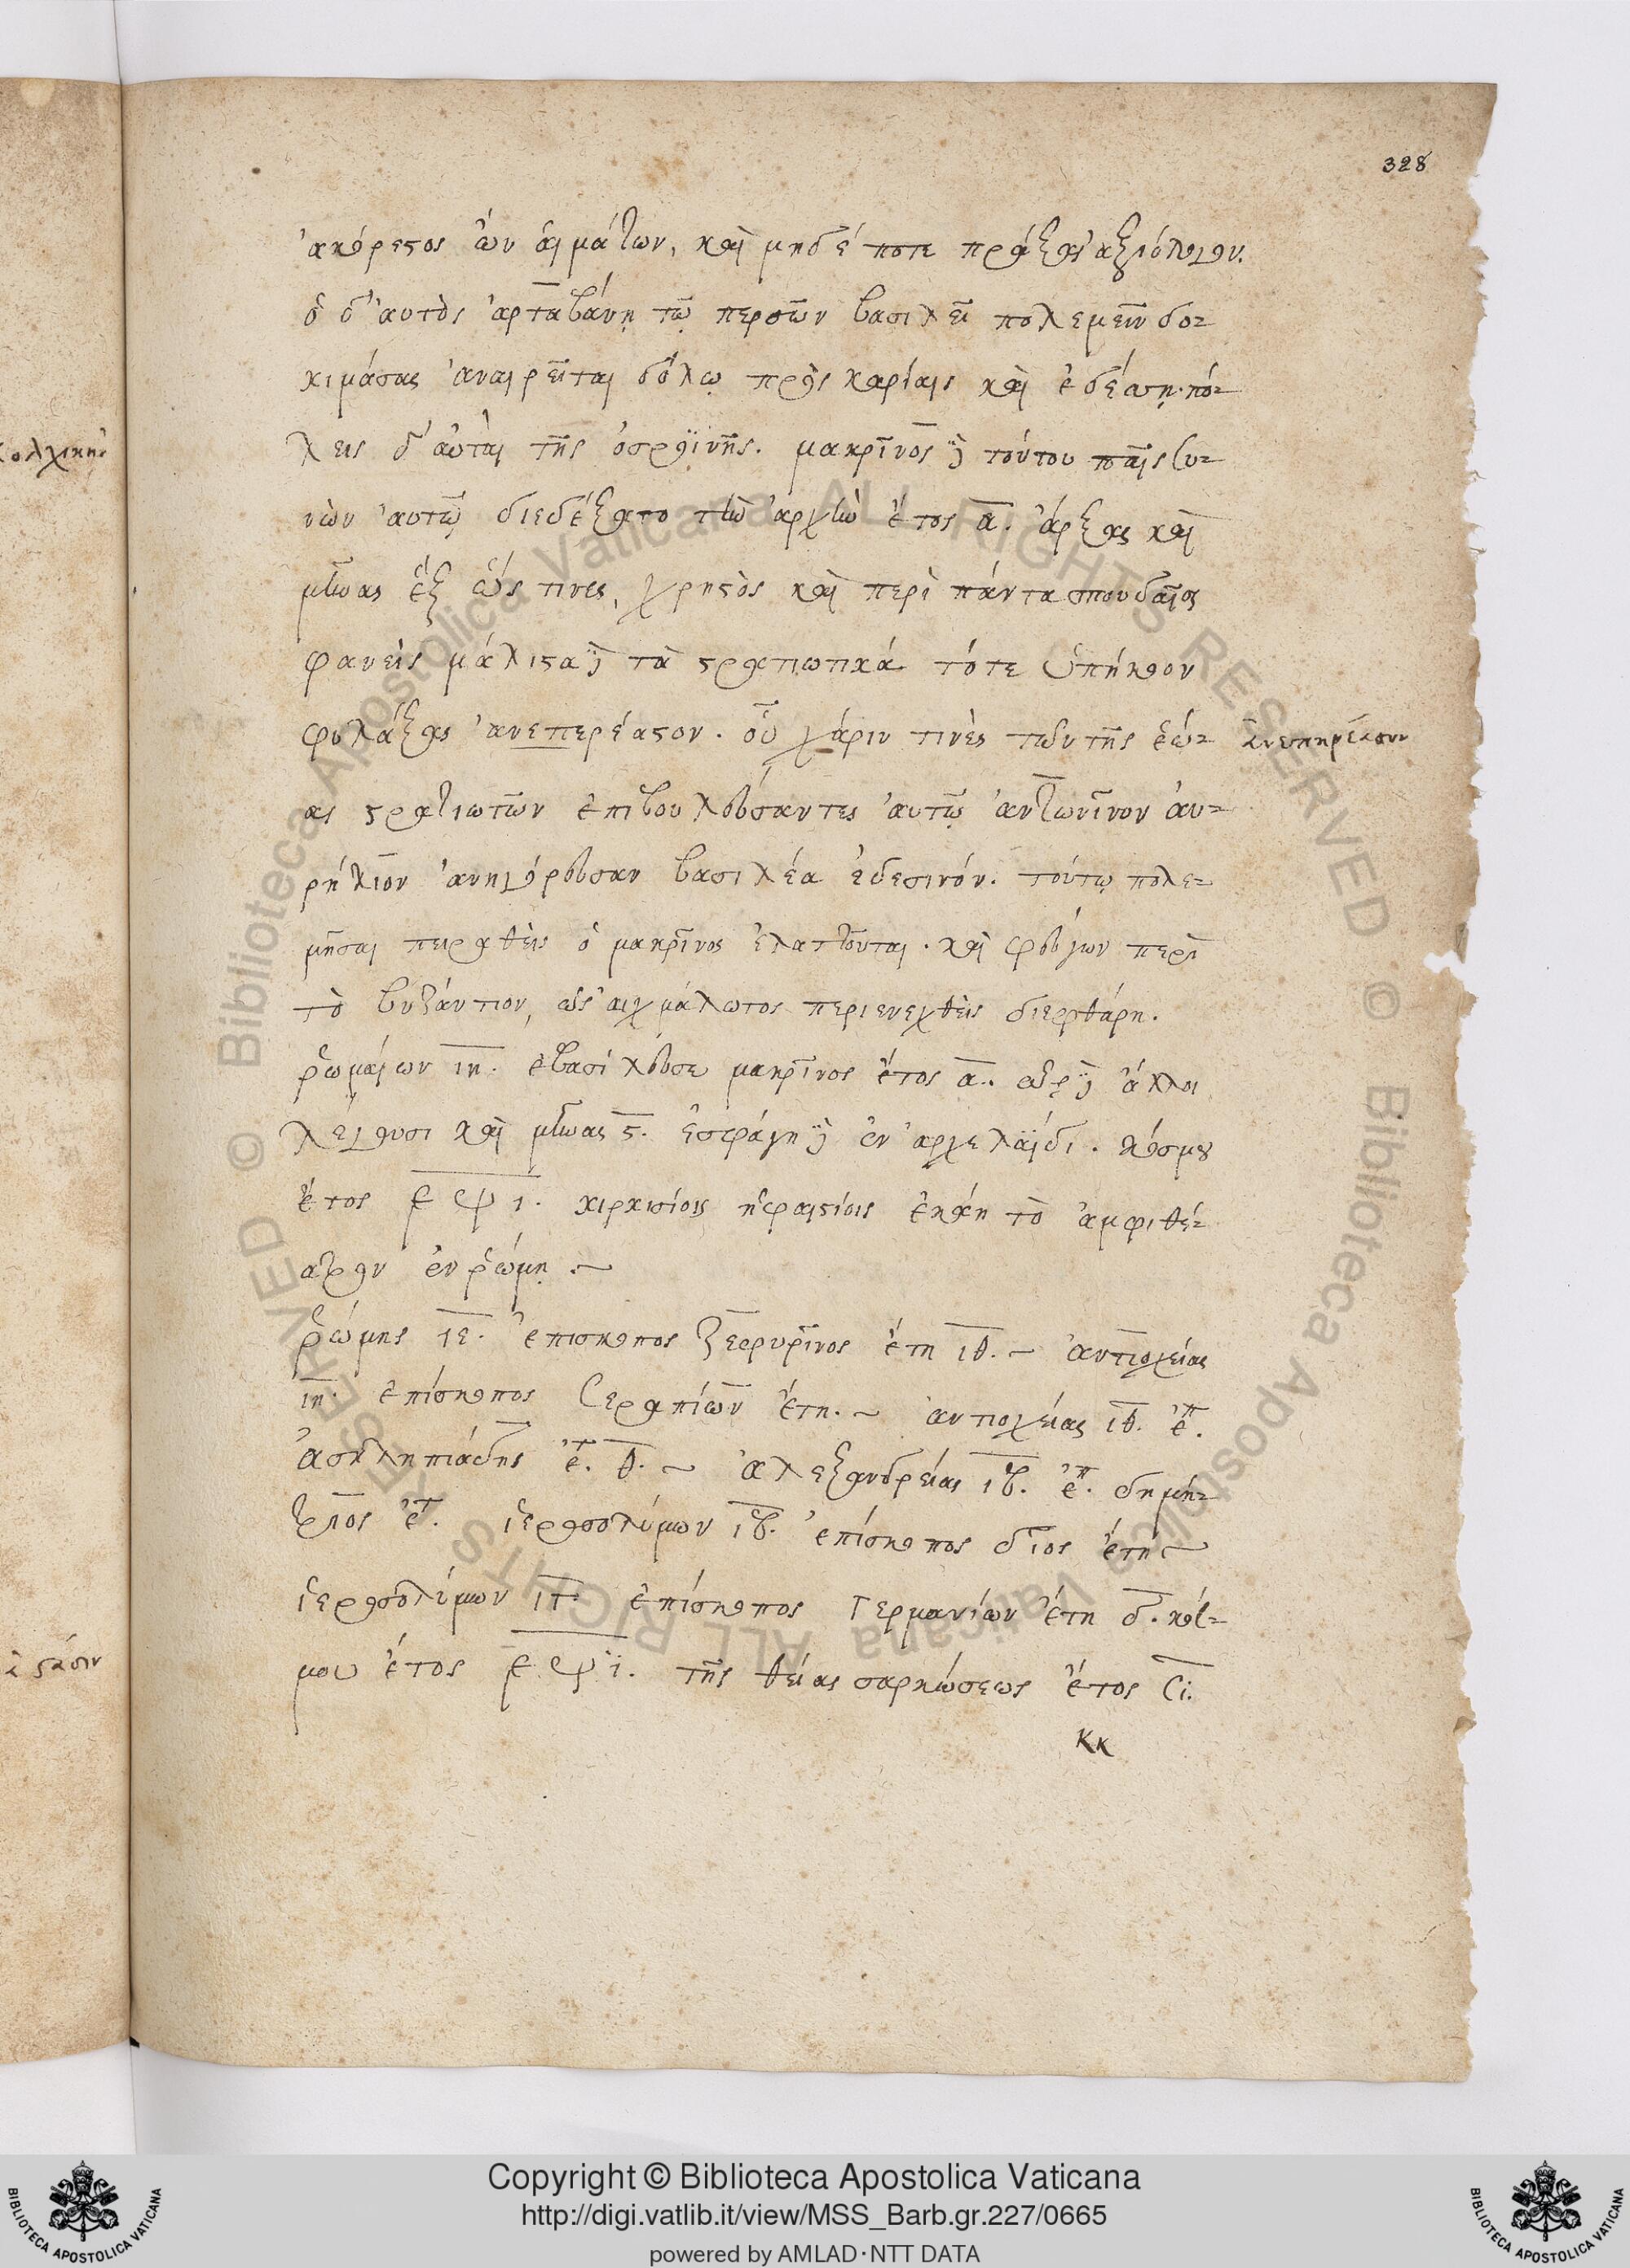 328
ἀκόρεστος ὢν αἱμάτων, καὶ μηδέποτε πράξας ἀξιόλογον.
ὁ δ' αὐτὸς ἀρταβάνῃ τῷ περσῶν βασιλεῖ πολεμεῖν δο-
κιμάσας ἀναιρεῖται δόλῳ πρὸς καρίαις καὶ ἐδέσῃ. πό-
λεις δ' αὗται τῆς ὀσροϊνῆς. μακρῖνος δὲ τούτου παῖς συ-
νὼν αὐτῷ διεδέξατο τὴν ἀρχὴν ἔτος α. ἄρξας καὶ
μῆνας ἓξ ὥς τινες, χρηστὸς καὶ περὶ πάντα σπουδαῖος
φανεὶς μάλιστα δὲ τὰ στρατιωτικά τότε ὑπήκοον
φυλάξας ἀνεπερέαστον. οὗ χάριν τινὲς τῶν τῆς ἑώ-
ἀνεπηρέαστον
ας στρατιωτῶν ἐπιβουλεύσαντες αὐτῷ ἀντωνῖνον αὐ-
ρήλιον ἀνηγόρευσαν βασιλέα ἐδεσινόν. τούτῳ πολε-
μῆσαι πειραθεὶς ὁ μακρῖνος ἐλαττοῦται. καὶ φεύγων περὶ
τὸ βυζάντιον, ὡς αἰχμάλωτος περιενεχθεὶς διεφθάρη.
ῥωμαίων ιη. ἐβασίλευσε μακρῖνος ἔτος α. ὡς δὲ ἄλλοι
λέγουσι καὶ μῆνας ϛ. ἐσφάγη δὲ ἐν ἀρχελαΐδι. κόσμου
ἔτος ͵εψι. κιρκισίοις ἡφαιστίοις ἐκάη τὸ ἀμφιθέ-
ατρον ἐν ῥώμῃ.~
ῥώμης ιε. ἐπίσκοπος ζεφυρῖνος ἔτη ιθ.~ ἀντιοχείας
ιη. ἐπίσκοπος Σεραπίων ἔτη.~ ἀντιοχείας ιθ. ἐπ.
ἀσκληπιάδης ἔτ. θ.~ ἀλεξανδρείας ιβ. ἐπ. δημή-
τριος ἔτ. ἱεροσολύμων ιβ. ἐπίσκοπος δῖος ἔτη~
ἱεροσολύμων ιγ ἐπίσκοπος Γερμανίων ἔτη δ. κόσ-
μου ἔτος ͵εψϊ. τῆς θείας σαρκώσεως ἔτος σι.
κκ
Copyright © Biblioteca Apostolica Vaticana
http://digi.vatlib.it/view/MSS_Barb.gr.227/0665
powered by AMLAD·NTT DATA
BIBLIOTECA APOSTOLICA VATICANA
BIBLIOTECA APOSTOLICA VATICANA
© Biblioteca Apostolica Vaticana ALL RIGHTS RESERVED © Biblioteca Apostolica Vaticana ALL RIGHTS RESERVED